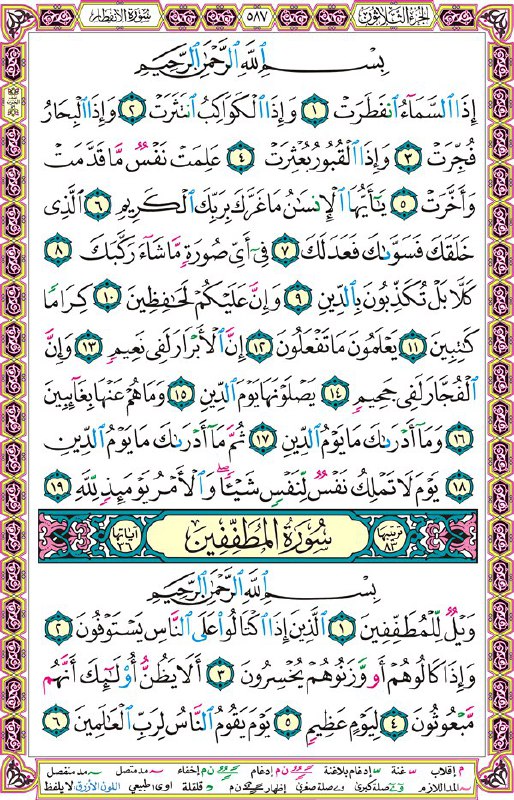 الجزء الثلاثون
٥٨٧
سورة الانفطار
بِسْمِ ٱللَّهِ ٱلرَّحْمَٰنِ ٱلرَّحِيمِ
إِذَا ٱلسَّمَآءُ ٱنفَطَرَتْ ١ وَإِذَا ٱلْكَوَاكِبُ ٱنتَثَرَتْ ٢ وَإِذَا ٱلْبِحَارُ
فُجِّرَتْ ٣ وَإِذَا ٱلْقُبُورُ بُعْثِرَتْ ٤ عَلِمَتْ نَفْسٌ مَّا قَدَّمَتْ
وَأَخَّرَتْ ٥ يَٰٓأَيُّهَا ٱلْإِنسَٰنُ مَا غَرَّكَ بِرَبِّكَ ٱلْكَرِيمِ ٦ ٱلَّذِى
خَلَقَكَ فَسَوَّىٰكَ فَعَدَلَكَ ٧ فِىٓ أَىِّ صُورَةٍ مَّا شَآءَ رَكَّبَكَ ٨
كَلَّا بَلْ تُكَذِّبُونَ بِٱلدِّينِ ٩ وَإِنَّ عَلَيْكُمْ لَحَٰفِظِينَ ١٠ كِرَامًا
كَٰتِبِينَ ١١ يَعْلَمُونَ مَا تَفْعَلُونَ ١٢ إِنَّ ٱلْأَبْرَارَ لَفِى نَعِيمٍ ١٣ وَإِنَّ
ٱلْفُجَّارَ لَفِى جَحِيمٍ ١٤ يَصْلَوْنَهَا يَوْمَ ٱلدِّينِ ١٥ وَمَا هُمْ عَنْهَا بِغَآئِبِينَ
١٦ وَمَآ أَدْرَىٰكَ مَا يَوْمُ ٱلدِّينِ ١٧ ثُمَّ مَآ أَدْرَىٰكَ مَا يَوْمُ ٱلدِّينِ
١٨ يَوْمَ لَا تَمْلِكُ نَفْسٌ لِّنَفْسٍ شَيْـًٔا ۖ وَٱلْأَمْرُ يَوْمَئِذٍ لِّلَّهِ ١٩
ترتيبها ٨٣
سُورَةُ المُطَفِّفِينَ
آياتها ٣٦
بِسْمِ ٱللَّهِ ٱلرَّحْمَٰنِ ٱلرَّحِيمِ
وَيْلٌ لِّلْمُطَفِّفِينَ ١ ٱلَّذِينَ إِذَا ٱكْتَالُوا۟ عَلَى ٱلنَّاسِ يَسْتَوْفُونَ ٢
وَإِذَا كَالُوهُمْ أَو وَّزَنُوهُمْ يُخْسِرُونَ ٣ أَلَا يَظُنُّ أُو۟لَٰٓئِكَ أَنَّهُم
مَّبْعُوثُونَ ٤ لِيَوْمٍ عَظِيمٍ ٥ يَوْمَ يَقُومُ ٱلنَّاسُ لِرَبِّ ٱلْعَٰلَمِينَ ٦
م إقلاب غنة إدغام بلاغنة ن م إدغام ن م إخفاء مد متصل مد منفصل
المد اللازم صلة كبرى صلة صغرى إظهار ن م قلقلة اوى: طبيعي اللون الأزرق لا يلفظ